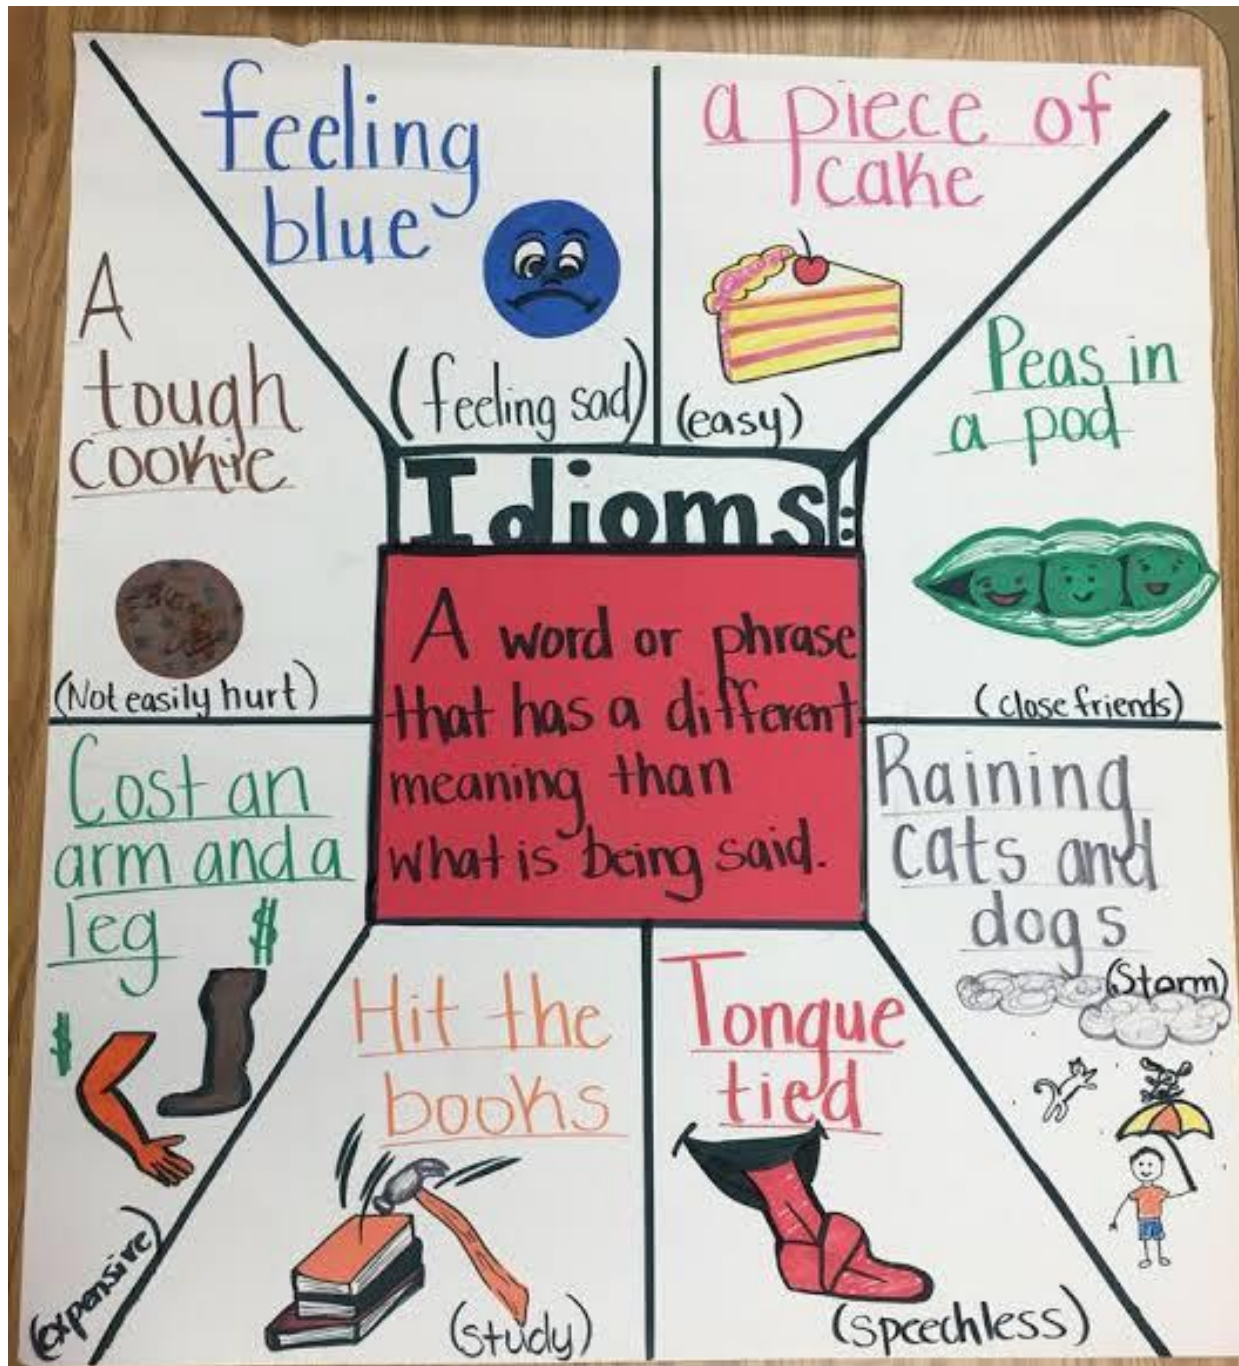 feeling
blue
(feeling sad)
a piece of
cake
(easy)
A
tough
cookie
(Not easily hurt)
Peas in
a pod
(close friends)
Idioms:
A word or phrase
that has a different
meaning than
what is being said.
Cost an
arm and a
leg
$
$
(expensive)
Raining
cats and
dogs
(Storm)
Hit the
books
(study)
Tongue
tied
(speechless)